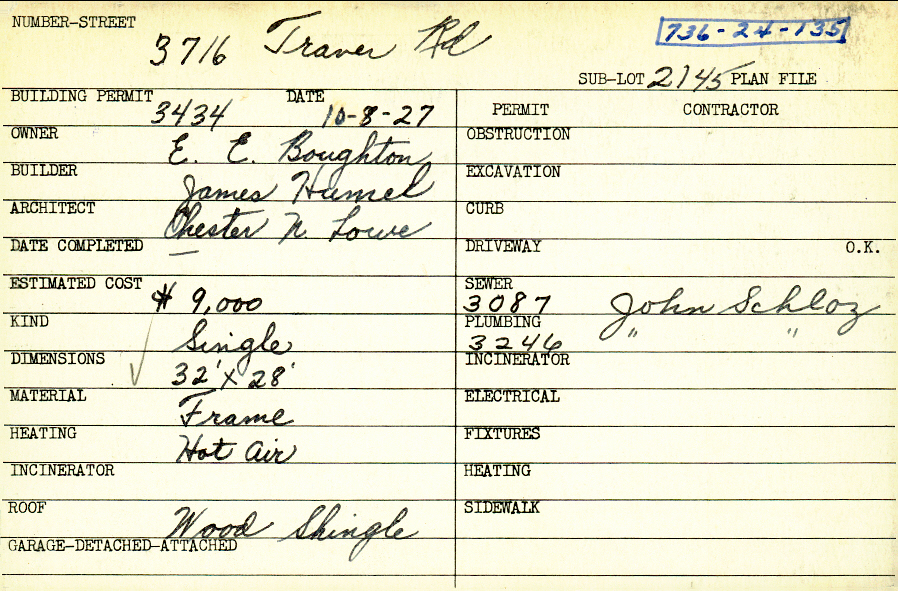 NUMBER-STREET
3716 Traver Rd
736-24-135
SUB-LOT 2145 PLAN FILE
BUILDING PERMIT 3434 DATE 10-8-27
OWNER E. E. Boughton
BUILDER James Humel
ARCHITECT Chester N. Lowe
DATE COMPLETED —
ESTIMATED COST $ 9,000
KIND Single
DIMENSIONS ✓ 32' x 28'
MATERIAL Frame
HEATING Hot Air
INCINERATOR
ROOF Wood Shingle
GARAGE-DETACHED-ATTACHED
PERMIT CONTRACTOR
OBSTRUCTION
EXCAVATION
CURB
DRIVEWAY O.K.
SEWER 3087 John Schloz
PLUMBING 3246 " "
INCINERATOR
ELECTRICAL
FIXTURES
HEATING
SIDEWALK